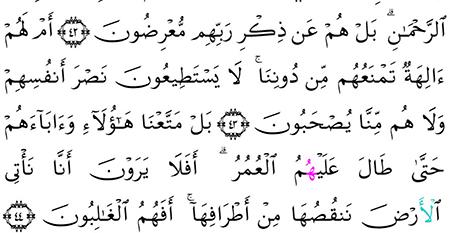 ٱلرَّحْمَـٰنِ ۗ بَلْ هُمْ عَن ذِكْرِ رَبِّهِم مُّعْرِضُونَ ﴿٤٢﴾ أَمْ لَهُمْ
ءَالِهَةٌ تَمْنَعُهُم مِّن دُونِنَا ۚ لَا يَسْتَطِيعُونَ نَصْرَ أَنفُسِهِمْ
وَلَا هُم مِّنَّا يُصْحَبُونَ ﴿٤٣﴾ بَلْ مَتَّعْنَا هَـٰٓؤُلَآءِ وَءَابَآءَهُمْ
حَتَّىٰ طَالَ عَلَيْهِمُ ٱلْعُمُرُ ۗ أَفَلَا يَرَوْنَ أَنَّا نَأْتِى
ٱلْأَرْضَ نَنقُصُهَا مِنْ أَطْرَافِهَآ ۚ أَفَهُمُ ٱلْغَـٰلِبُونَ ﴿٤٤﴾